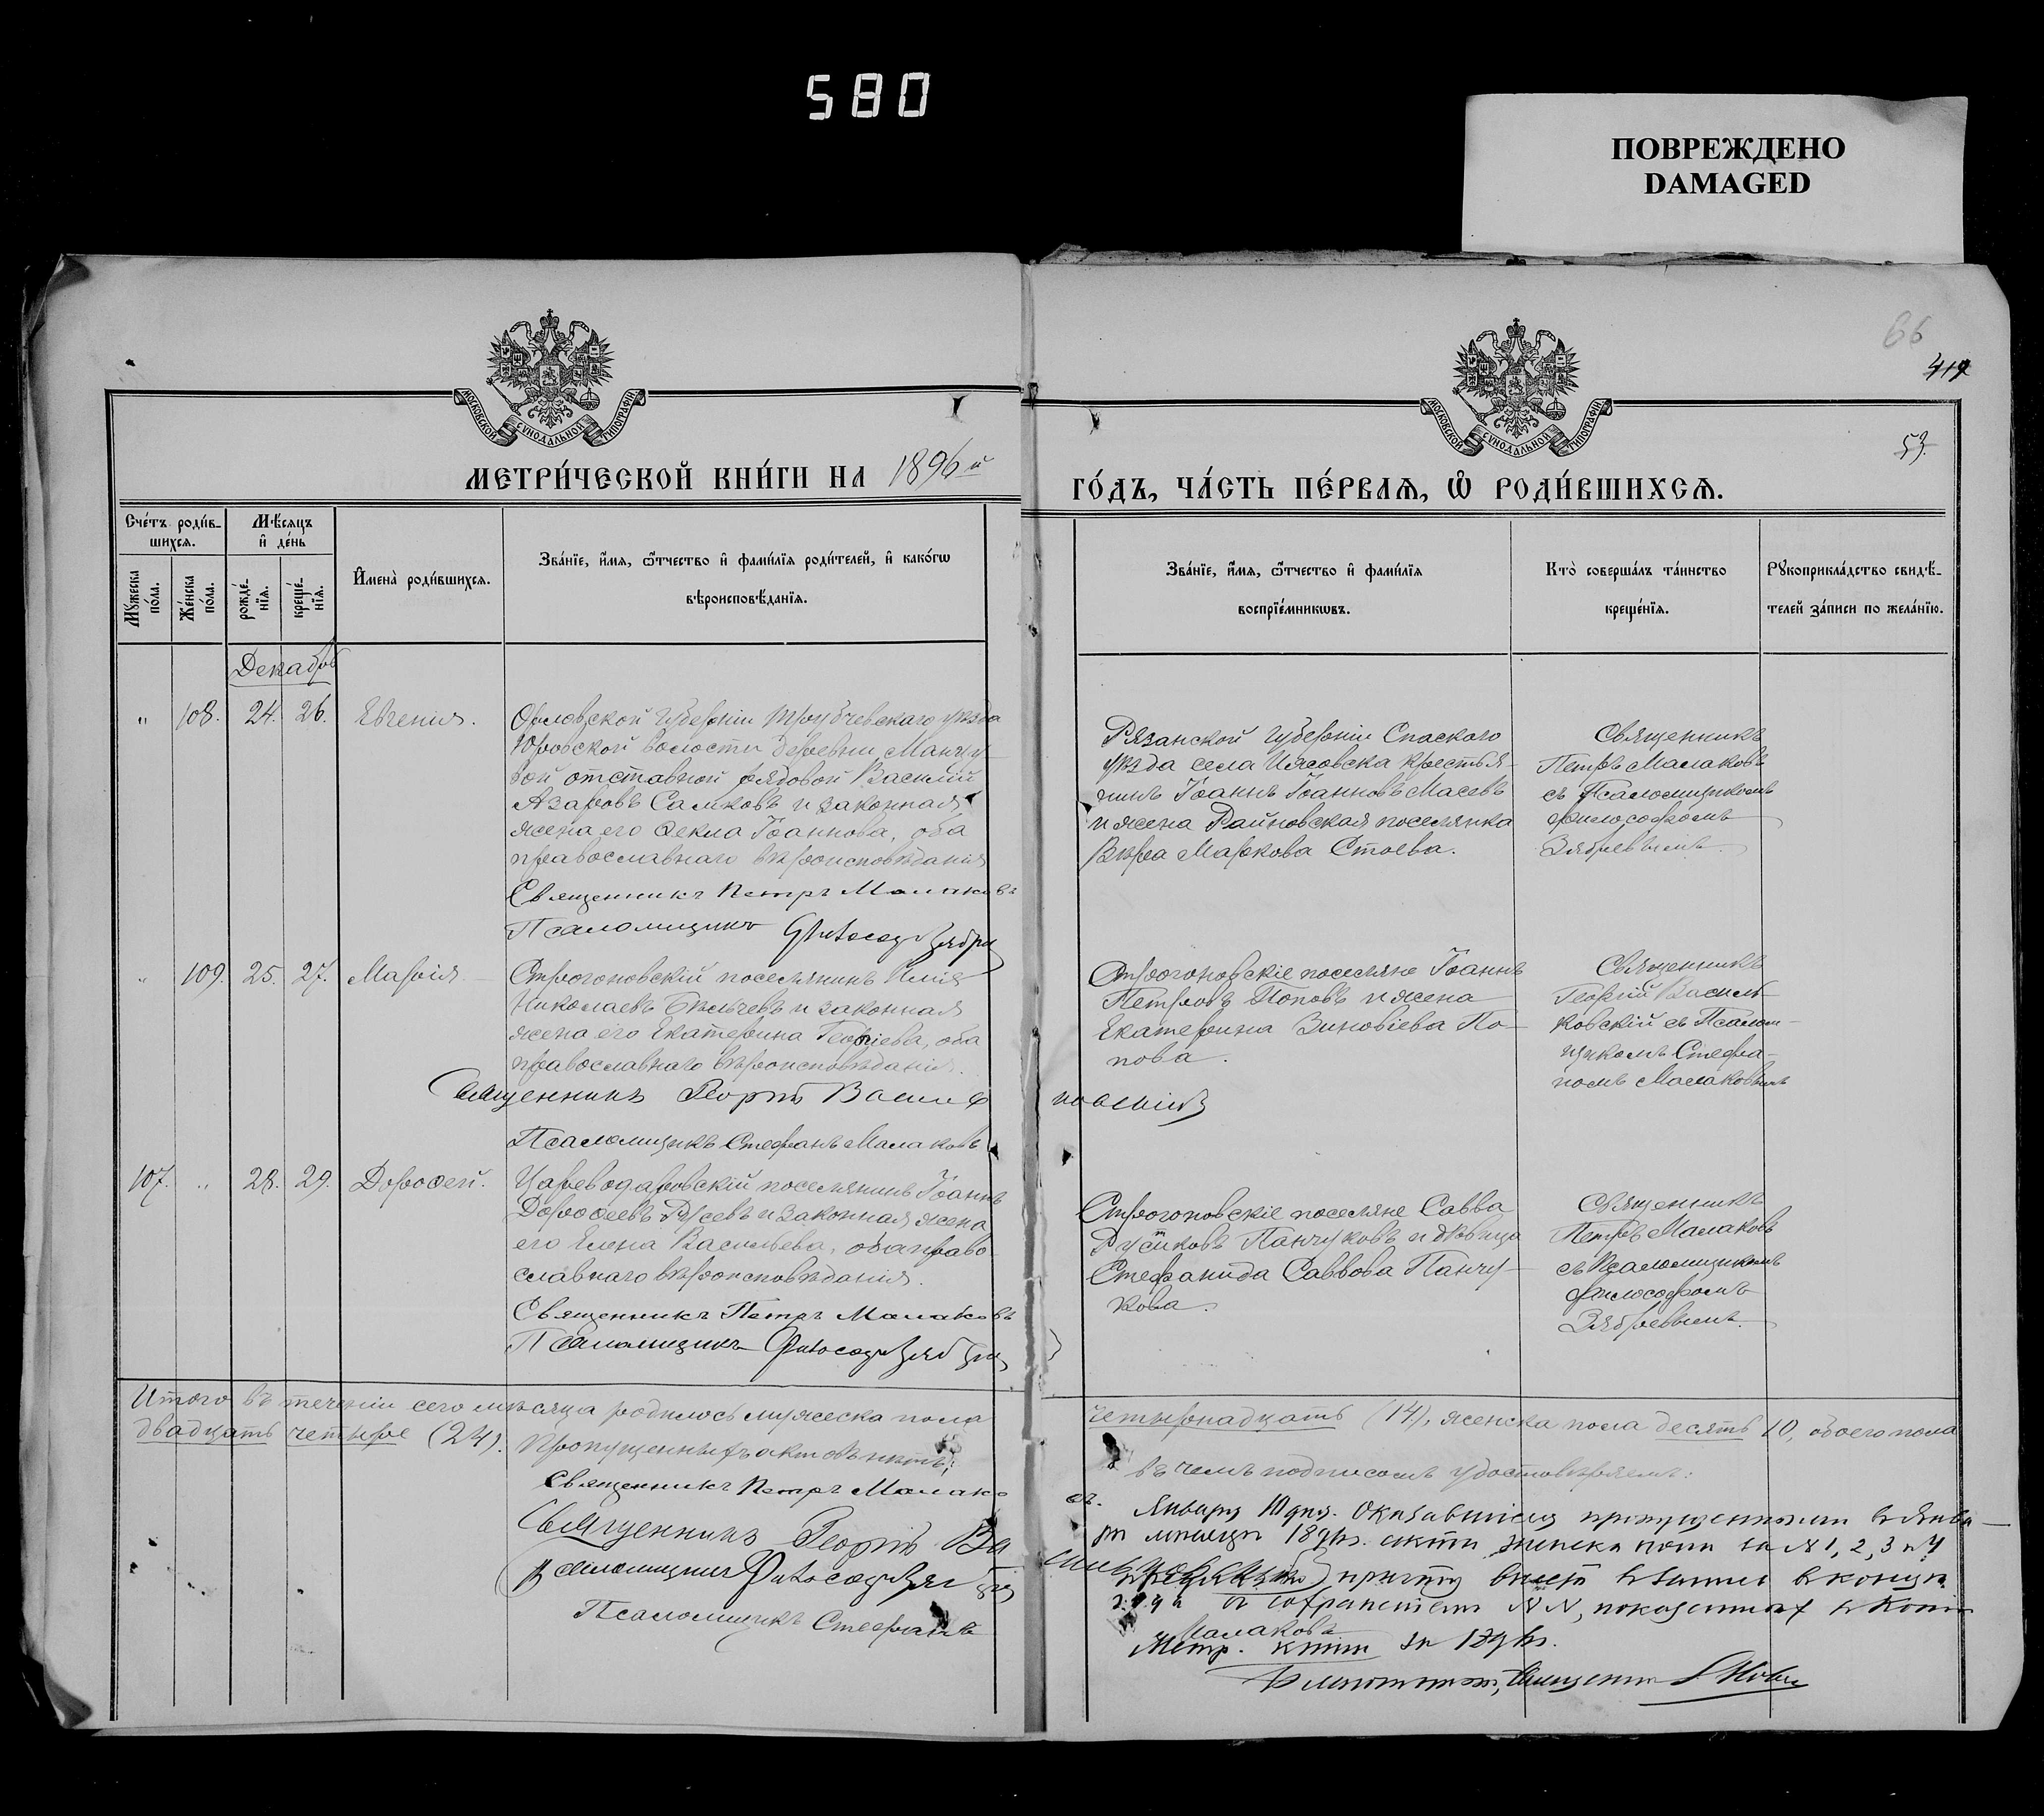 580
ПОВРЕЖДЕНО
DAMAGED
66
419
53.
МОСКОВСКОЙ СУНОДАЛЬНОЙ ТИПОГРАФІИ
МОСКОВСКОЙ СУНОДАЛЬНОЙ ТИПОГРАФІИ
МЕТРИ́ЧЕСКОЙ КНИ́ГИ НА 1896й
ГО́ДЪ, ЧА́СТЬ ПЕ́РВАЯ, Ѡ РОДИ́ВШИХСЯ.
Сче́тъ роди́в-
шихся.
Мѣ́сяцъ
и҆ де́нь
Мꙋ́жеска по́ла.
Же́нска по́ла.
рожде́-нїя.
креще́-нїя.
И҆мена̀ роди́вшихся.
Зва́нїе, и҆́мя, ѻ҆́тчество и҆ фами́лїя роди́телей, и҆ како́гѡ
вѣроисповѣ́данїя.
Зва́нїе, и҆́мя, ѻ҆́тчество и҆ фами́лїя
воспрїе́мникѡвъ.
Кто̀ соверша́лъ та́инство
креще́нїя.
Рꙋкоприкла́дство свидѣ́-
телей за́писи по жела́нїю.
Декабрь
" 108. 24. 26. Евгенія.
Орловской губерніи Трубчевскаго уѣзда
Юровской волости деревни Манцу-
вой отставной рядовой Василій
Азаровъ Салковъ и законная
жена его Ѳекла Іоаннова, оба
православнаго вѣроисповѣданія
Священникъ Петръ Малаковъ
Псаломщикъ
Рязанской губерніи Спаского
уѣзда села Ижовска крестья-
нинъ Іоаннъ Іоанновъ Масевъ
и жена Раиновская поселянка
Вѣра Маркова Стоева.
Священникъ
Петръ Малаковъ
съ Псаломщикомъ
Философомъ
Зябревымъ.
" 109. 25. 27. Марія
Строгоновскій поселянинъ Илія
Николаевъ Бѣльчевъ и законная
жена его Екатерина Георгіева, оба
православнаго вѣроисповѣданія.
Священникъ Георгій Василь
ковскій
Псаломщикъ Стефанъ Малаковъ
Строгоновскіе поселяне Іоаннъ
Петровъ Поповъ и жена
Екатерина Зиновіева По-
пова.
Священникъ
Георгій Василь-
ковскій съ Псалом-
щикомъ Стефа-
номъ Малаковымъ
107. " 28. 29. Дороѳей.
Цареводаровскій поселянинъ Іоаннъ
Дороѳеевъ Русевъ и законная жена
его Елена Васильева, оба право-
славнаго вѣроисповѣданія.
Священникъ Петръ Малаковъ
Псаломщикъ
Строгоновскіе поселяне Савва
Панчуковъ и дѣвица
Стефанида Саввова Панчу-
кова.
Священникъ
Петръ Малаковъ
съ Псаломщикомъ
Философомъ
Зябревымъ.
Итого въ теченіи сего мѣсяца родилось мужеска пола четырнадцать (14), женска пола десять 10, обоего пола
двадцать четыре (24). Пропущенныхъ актовъ нѣтъ; въ чемъ подписомъ удостовѣряемъ:
Священникъ Петръ Малаковъ.
Священникъ Георгій Васильковскій
Псаломщикъ
Псаломщикъ Стефанъ Малаковъ
Января 10 дня. Оказавшіеся пропущенными въ Янва-
№ 1, 2, 3 и 4
Метр. книги за 1896.